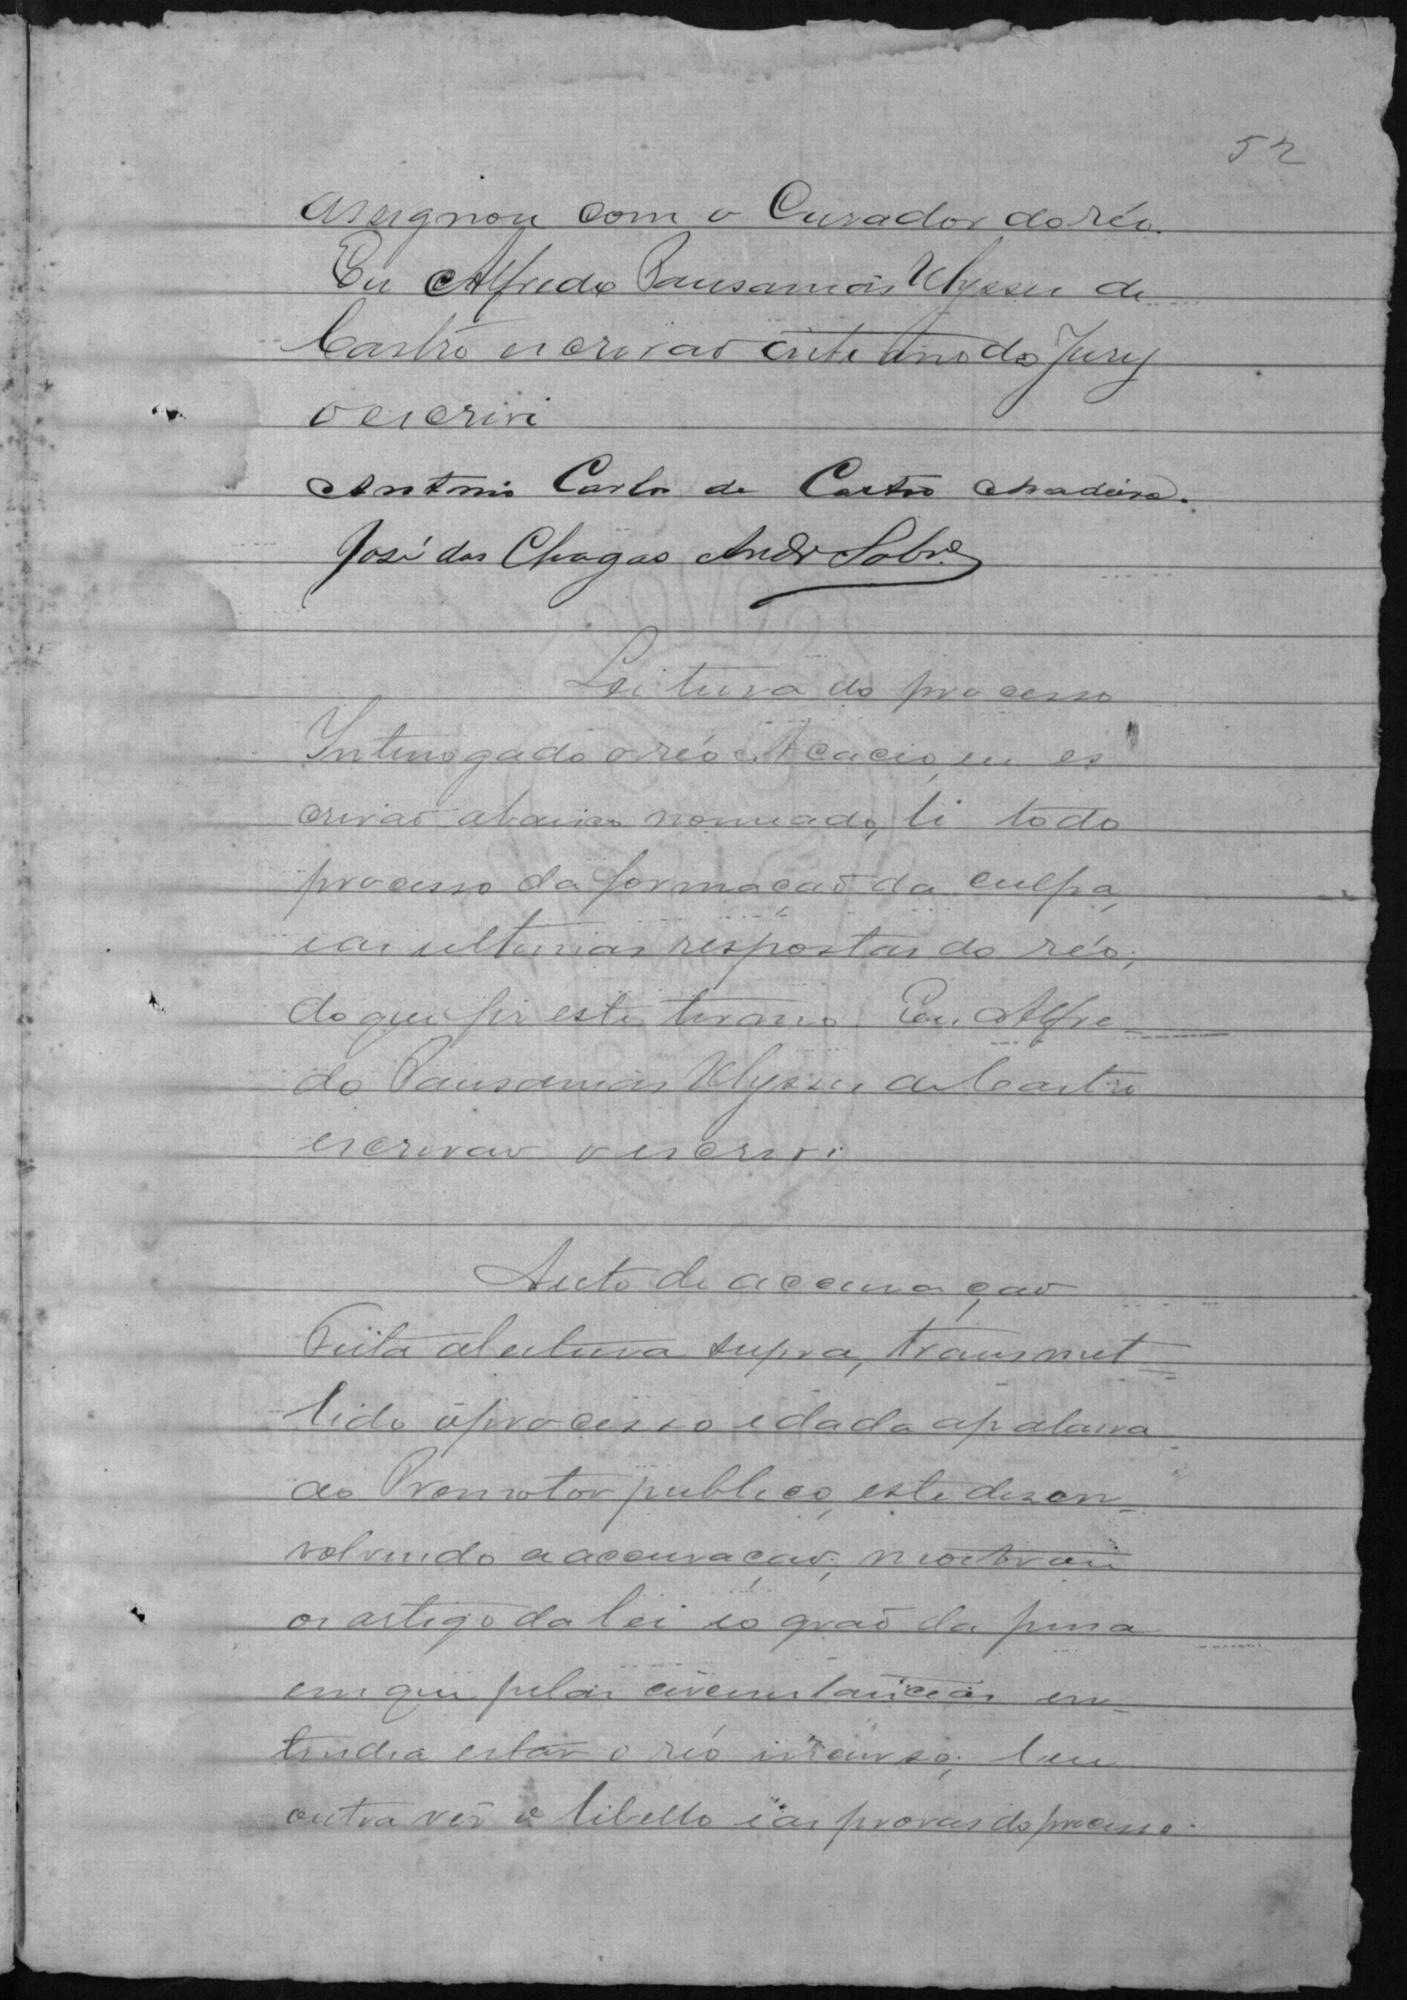 52
assignou com o Curador do réo.
Eu Alfredo Pausanias Ulysses de
Castro escrivão interino do Jury
o escrivi
Antonio Carlos de Castro Madeira.
José das Chagas Andr. Sobr.
Leitura do processo
Interrogado o réo Acacio, eu es
crivão abaixo nomeado, li todo
processo da formação da culpa,
e as ultimas respostas do réo;
do que fiz este termo. Eu, Alfre
do Pausanias Ulysses de Castro
escrivão o escrivi
Auto de accusação
Feita a leitura supra, transmet
tido o processo e dada a palavra
ao Promotor publico, este desen
volvendo a accusação, mostrou
os artigo da lei e o grao da pena
em que pelas circumstancias en
tendia estar o réo incurso; leu
outra vez o libello e as provas do processo.